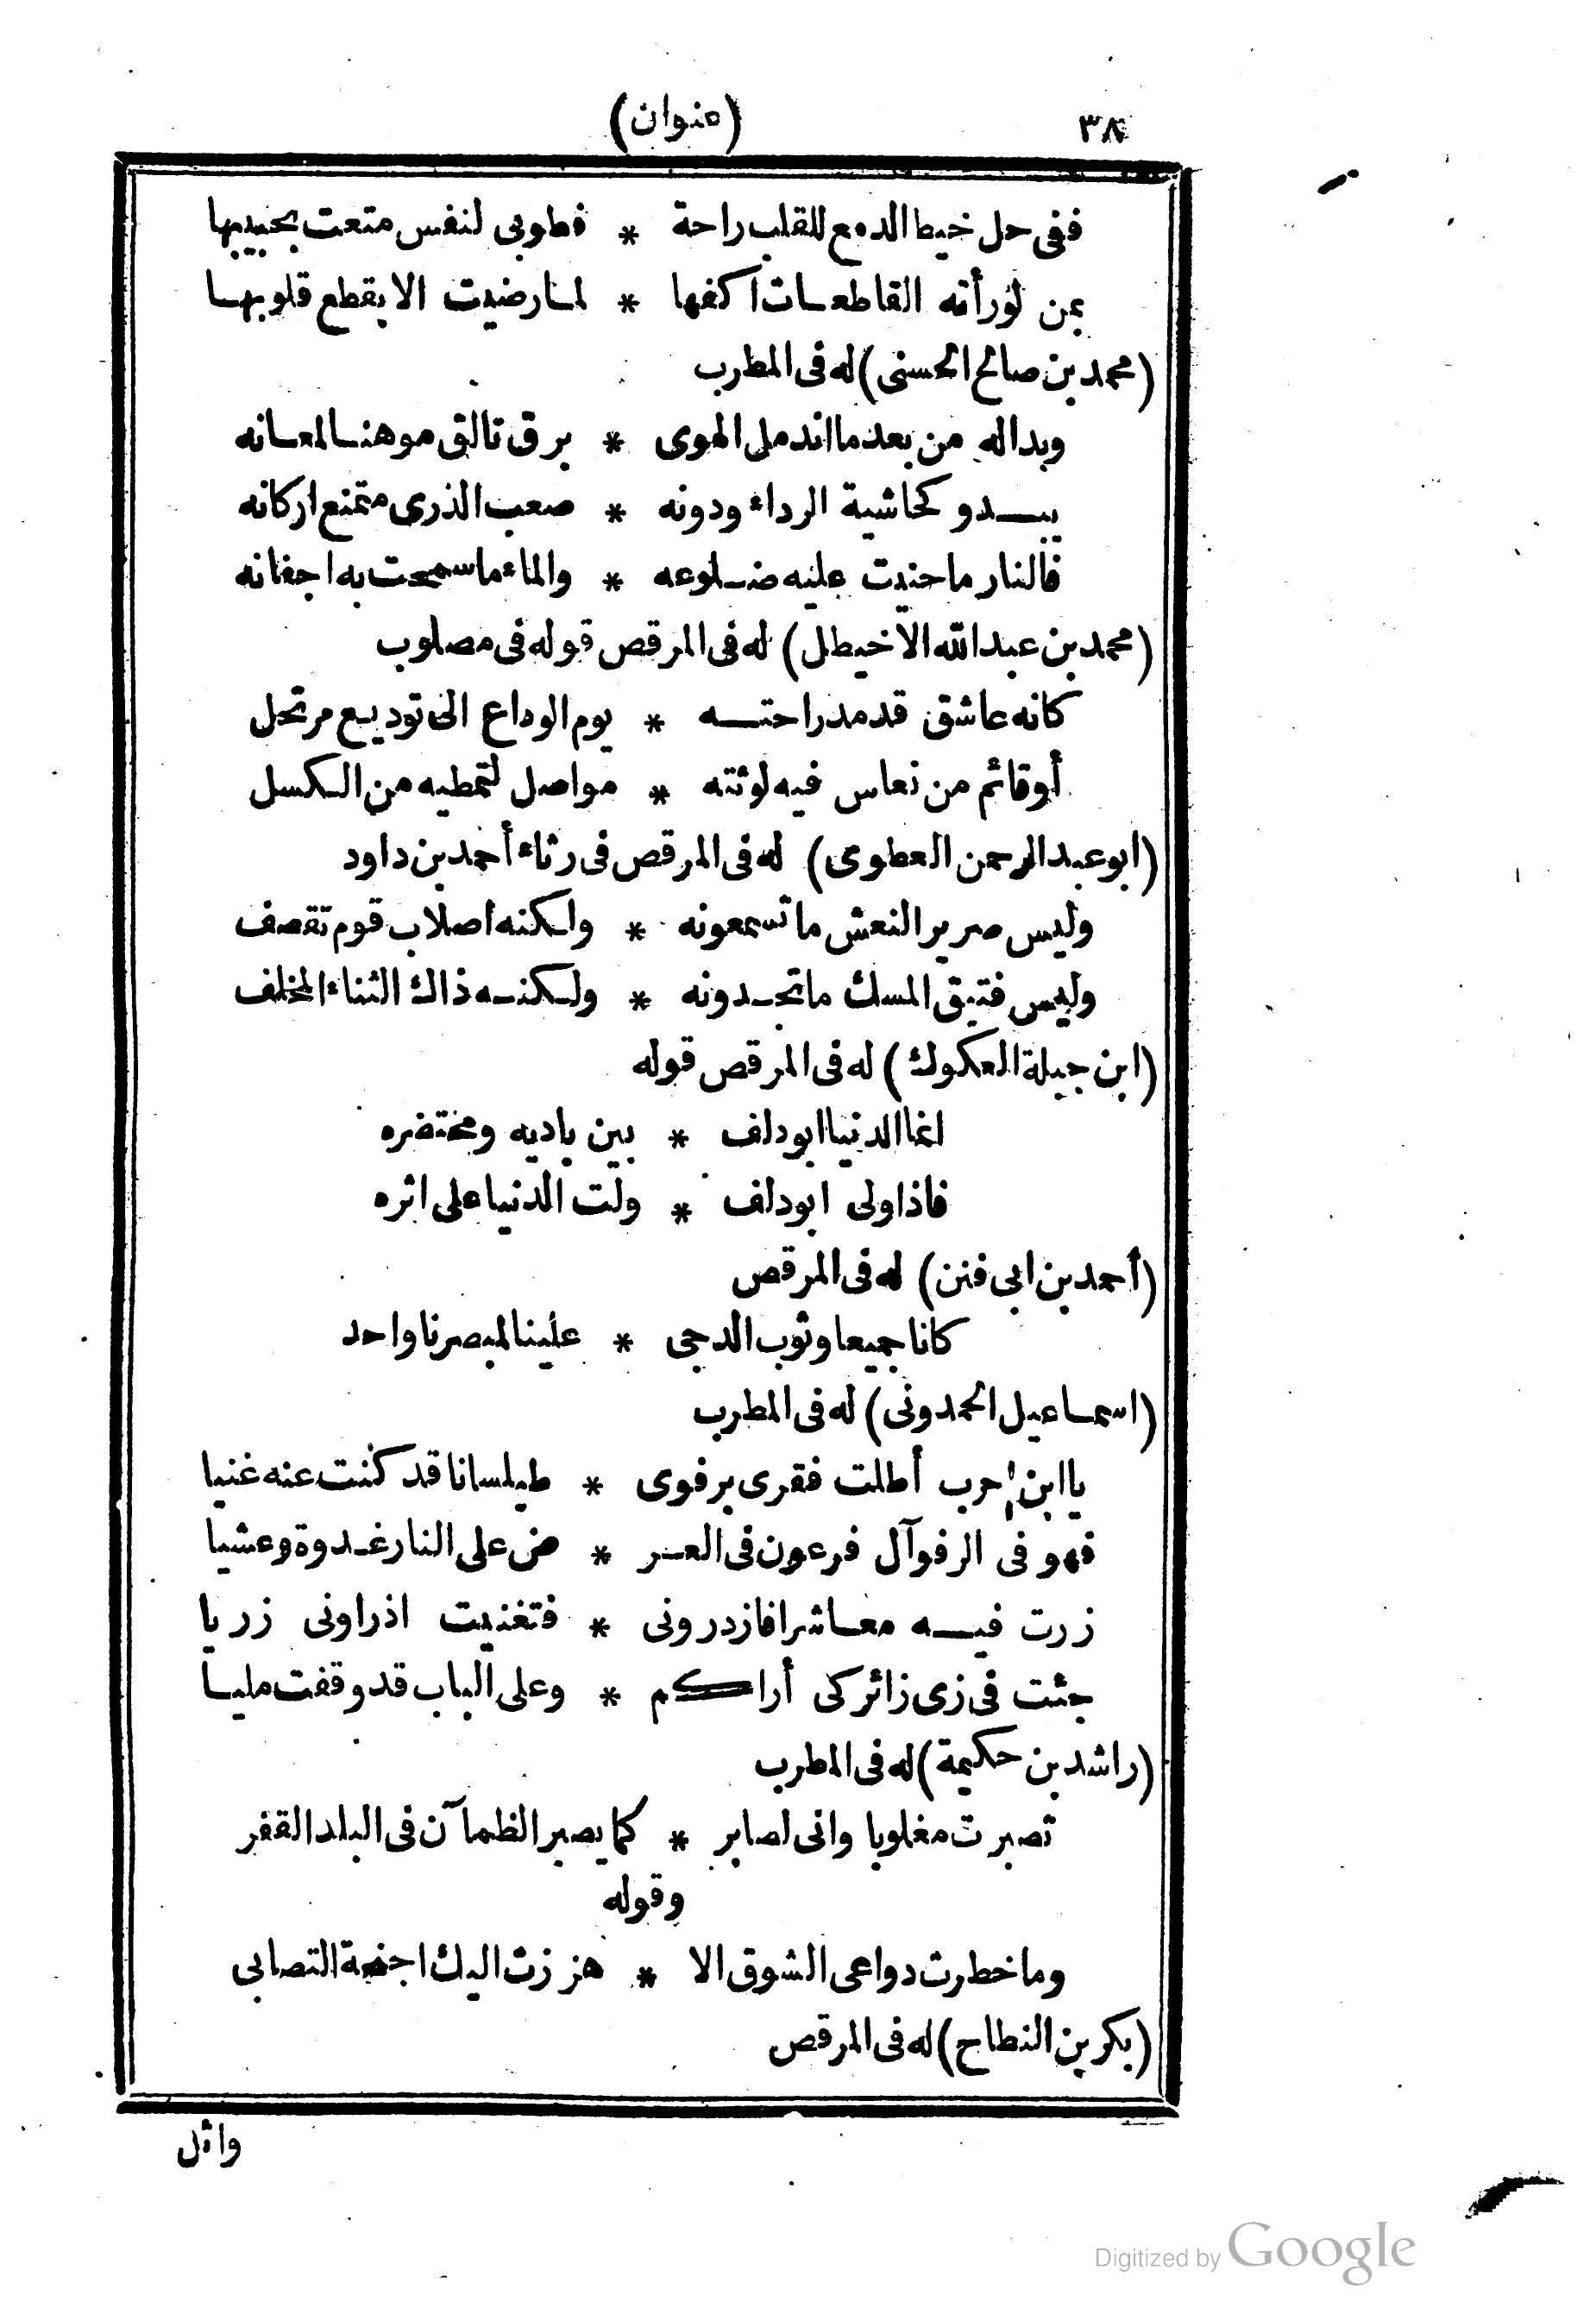 ٣٨ (عنوان)
ففى حل خيط الدمع للقلب راحة * فطوبى لنفس متعت بحبيبها
بمن لو رأته القاطعات اكفها * لما رضيت الا بقطع قلوبها
(محمد بن صالح الحسنى) له فى المطرب
وبدا له من بعد ما اندمل الهوى * برق تالق موهنا لمعانه
يبدو كحاشية الرداء ودونه * صعب الذرى متمنع اركانه
فالنار ما حنيت عليه ضلوعه * والماء ما سمحت به اجفانه
(محمد بن عبد الله الاخيطل) له فى المرقص قوله فى مصلوب
كانه عاشق قد مد راحته * يوم الوداع الى توديع مرتحل
أو قائم من نعاس فيه لوثته * مواصل لتمطيه من الكسل
(ابو عبد الرحمن العطوى) له فى المرقص فى رثاء أحمد بن داود
وليس صرير النعش ما تسمعونه * ولكنه اصلاب قوم تقصف
وليس فتيق المسك ما تجدونه * ولكنه ذاك الثناء المخلف
(ابن جبلة العكوك) له فى المرقص قوله
انما الدنيا ابو دلف * بين باديه ومحتضره
فاذا ولى ابو دلف * ولت الدنيا على اثره
(أحمد بن ابى فنن) له فى المرقص
كانا جميعا وثوب الدجى * علينا لمبصرنا واحد
(اسماعيل الحمدونى) له فى المطرب
يا ابن حرب أطلت فقرى برفوى * طيلسانا قد كنت عنه غنيا
فهو فى الرفو آل فرعون فى العر * ض على النار غدوة وعشيا
زرت فيه معاشرا فازدرونى * فتغنيت اذ راونى زريا
جئت فى زى زائر كى أراكم * وعلى الباب قد وقفت مليا
(راشد بن حكيمة) له فى المطرب
تصبرت مغلوبا وانى لصابر * كما يصبر الظمآن فى البلد القفر
وقوله
وما خطرت دواعى الشوق الا * هززت اليك اجنحة التصابى
(بكر بن النطاح) له فى المرقص
Digitized by Google